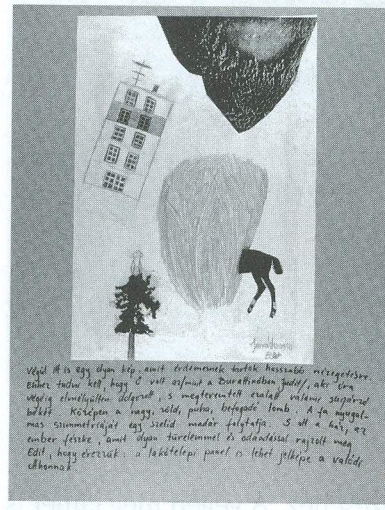 Végül itt is egy olyan kép, amit érdemesnek tartok hosszabb nézegetésre.
Ehhez tudni kell, hogy Ő volt az a Durattinóban aki óra
végéig elmélyülten dolgozott, s megteremtett ezalatt valami sugárzó
békét. Középen a nagy, zöld, puha, befogadó lomb. A fa nyugal-
mas szimmetriáját egy szelíd madár folytatja. S ott a ház, az
ember fészke, amit olyan türelemmel és odaadással rajzolt meg
Edit, hogy érezzük: a lakótelepi panel is lehet jelképe a valódi
otthonnak.